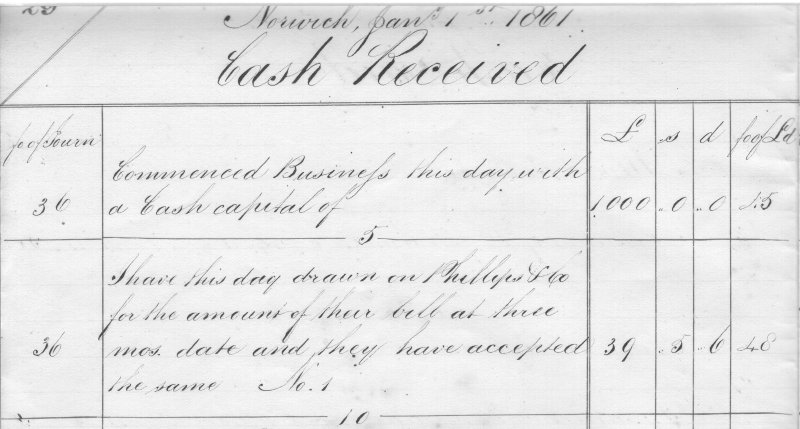 23
Norwich, Jany 1st 1861.
Cash Received
fo of Journ £ s d fo of Ld
Commenced Business this day with
36 a Cash capital of 1000 .. 0 .. 0 45
5
I have this day drawn on Phillips & Co
for the amount of their bill at three
36 mos. date and they have accepted 39 .. 5 .. 6 48
the same No. 1
10